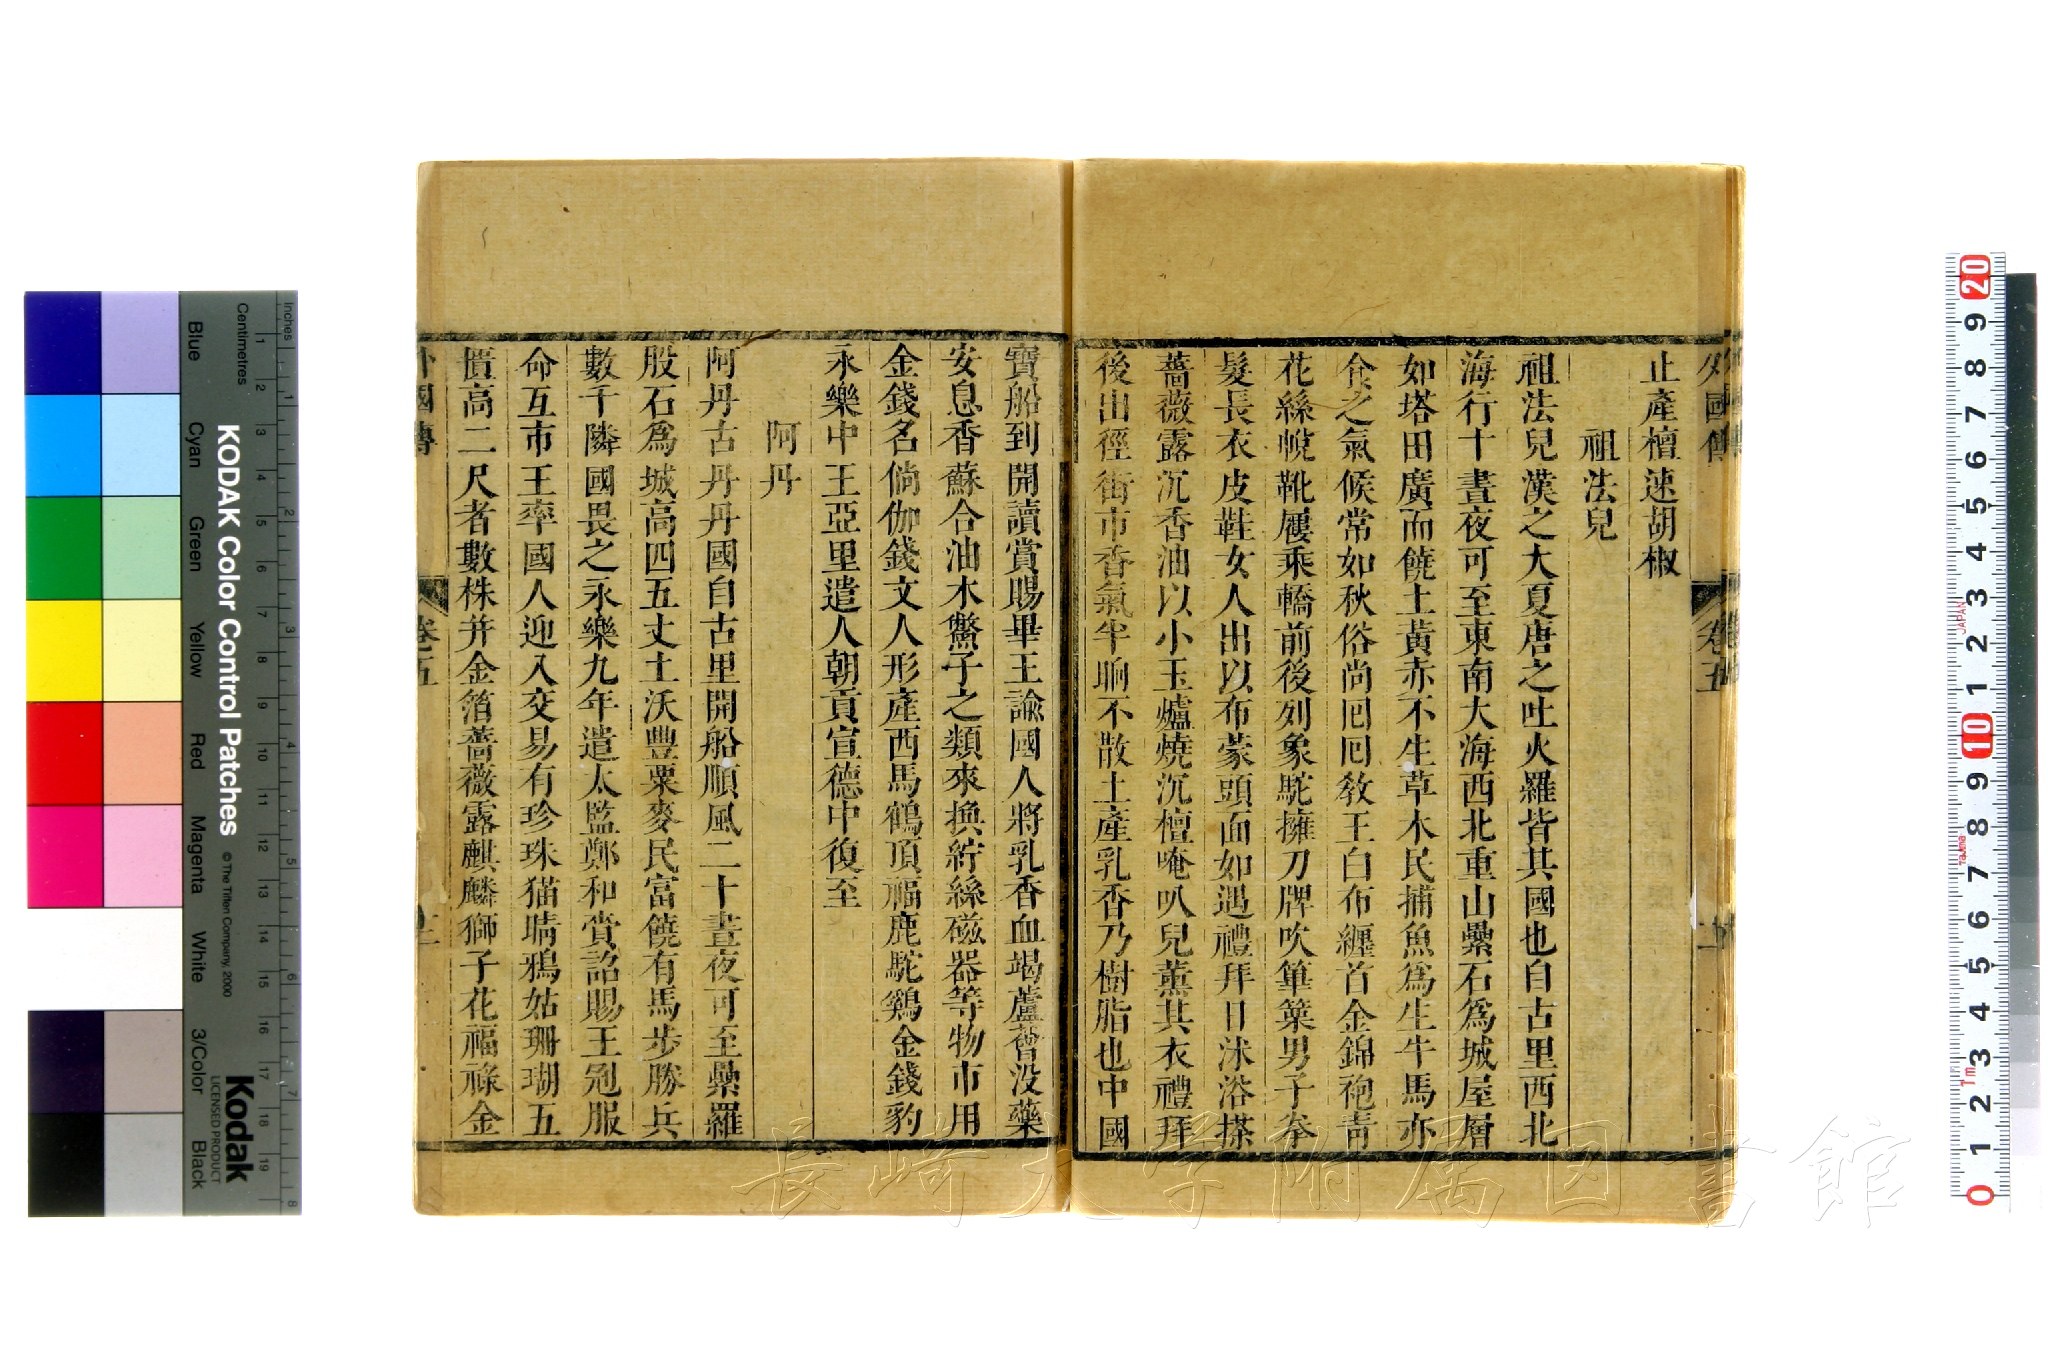 外國傳
卷五
二
止產檀速胡椒
祖法兒
祖法兒漢之大夏唐之吐火羅皆其國也自古里西北
海行十晝夜可至東南大海西北重山纍石爲城屋層
如塔田廣而饒土黃赤不生草木民捕魚爲生牛馬亦
食之氣候常如秋俗尚囘囘教王白布纏首金錦袍青
花絲帨靴屨乘轎前後列象駝擁刀牌吹篳篥男子拳
髮長衣皮鞋女人出以布蒙頭面如遇禮拜日沐浴搽
薔薇露沉香油以小玉爐燒沉檀唵叭兒薰其衣禮拜
後出徑街市香氣半晌不散土產乳香乃樹脂也中國
寶船到開讀賞賜畢王諭國人將乳香血竭蘆薈没藥
安息香蘇合油木鱉子之類來換紵絲磁器等物市用
金錢名倘伽錢文人形產西馬鶴頂福鹿駝鷄金錢豹
永樂中王亞里遣人朝貢宣德中復至
阿丹
阿丹古丹丹國自古里開船順風二十晝夜可至纍羅
股石爲城高四五丈土沃豐粟麥民富饒有馬步勝兵
數千隣國畏之永樂九年遣太監鄭和賞詔賜王冠服
命互市王率國人迎入交易有珍珠猫睛鴉姑珊瑚五
匱高二尺者數株并金箔薔薇露麒麟獅子花福祿金
外國傳
卷五
KODAK Color Control Patches
© The Tiffen Company, 2000
Kodak
LICENSED PRODUCT
Inches
Centimetres
Blue
Cyan
Green
Yellow
Red
Magenta
White
3/Color
Black
1 2 3 4 5 6 7 8 9 10 11 12 13 14 15 16 17 18 19
1 2 3 4 5 6 7 8
20
9
8
7
6
5
4
3
2
1
10
9
8
7
6
5
4
3
2
1
0
JAPAN
Tajima
1m
長崎大学附属図書館